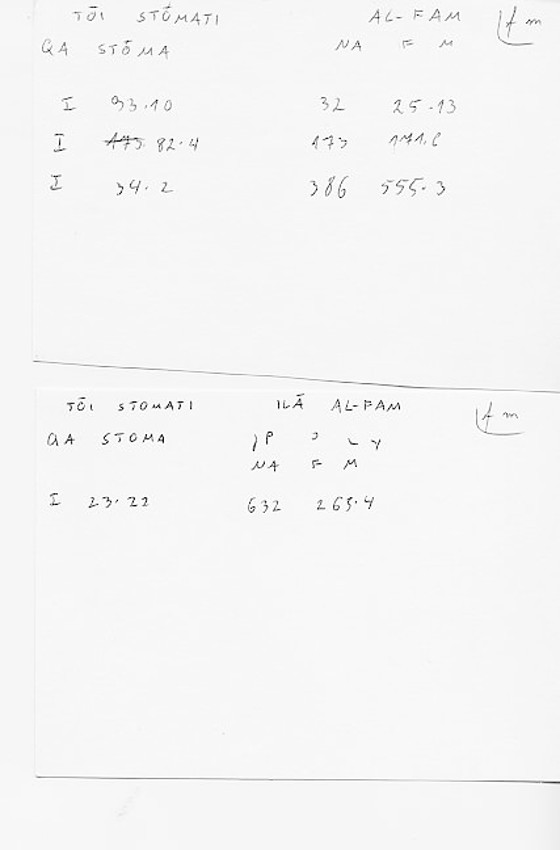 TŌI STŌMATI AL-FAM fm
QA STŌMA NA F M
I 93.10 32 25.13
I 82.4 173 171.6
I 34.2 386 555.3
TŌI STOMATI ILĀ AL-FAM fm
QA STOMA
NA F M
I 23.22 632 265.4